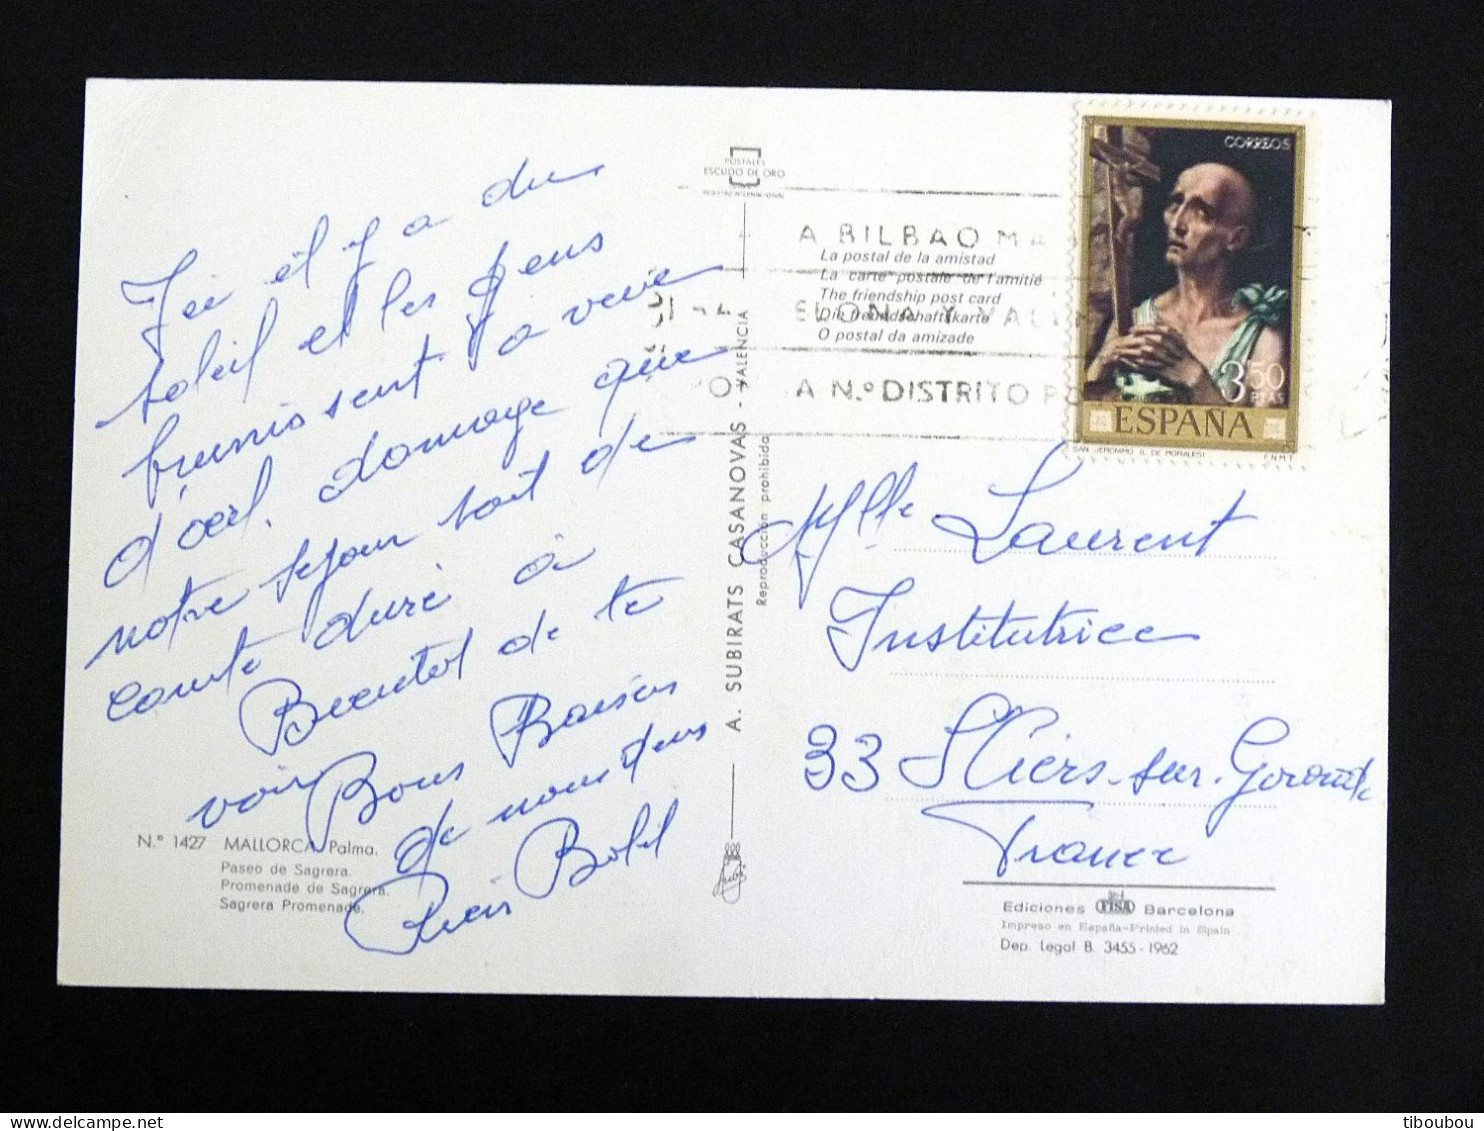 Ici il y a du
soleil et les gens
brunissent a vue
d'œil, domage que
notre sejour soit de
courte duré à
Bientot de te
voir Bons Baisers
de nous deus
N.º 1427 MALLORCA, Palma.
Paseo de Sagrera.
Promenade de Sagrera.
Sagrera Promenade.
POSTALES
ESCUDO DE ORO
REGISTRO INTERNACIONAL
A. SUBIRATS CASANOVAS - VALENCIA
Reproducción prohibida
La postal de la amistad
La carte postale de l'amitié
The friendship post card
Die freundschaftskarte
O postal da amizade
A BILBAO MA
ELONA Y VAL
A N.º DISTRITO PO
CORREOS
3'50
PTAS
ESPAÑA
SAN JERONIMO (L. DE MORALES)
F.N.M.T.
Mlle Laurent
Institutrice
33 St Ciers-sur-Gironde
France
Ediciones FISA Barcelona
Impreso en España-Printed in Spain
Dep. legal B. 3455-1962
tiboubou